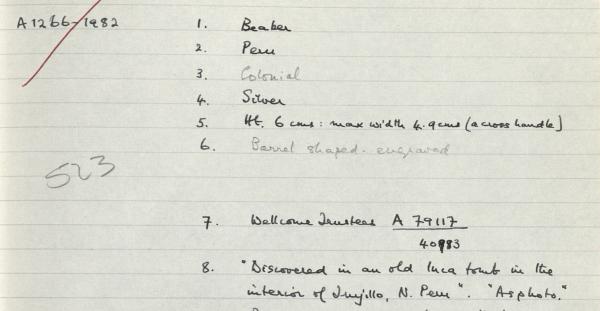 A1266-1982
1. Beaker
2. Peru
3. Colonial
4. Silver
5. Ht. 6 cms: max width 4.9cms (across handle)
6. Barrel shaped. engraved
523
7. Wellcome Trustees A 79117
40983
8. "Discovered in an old Inca tomb in the
interior of Trujillo, N. Peru". "As photo."